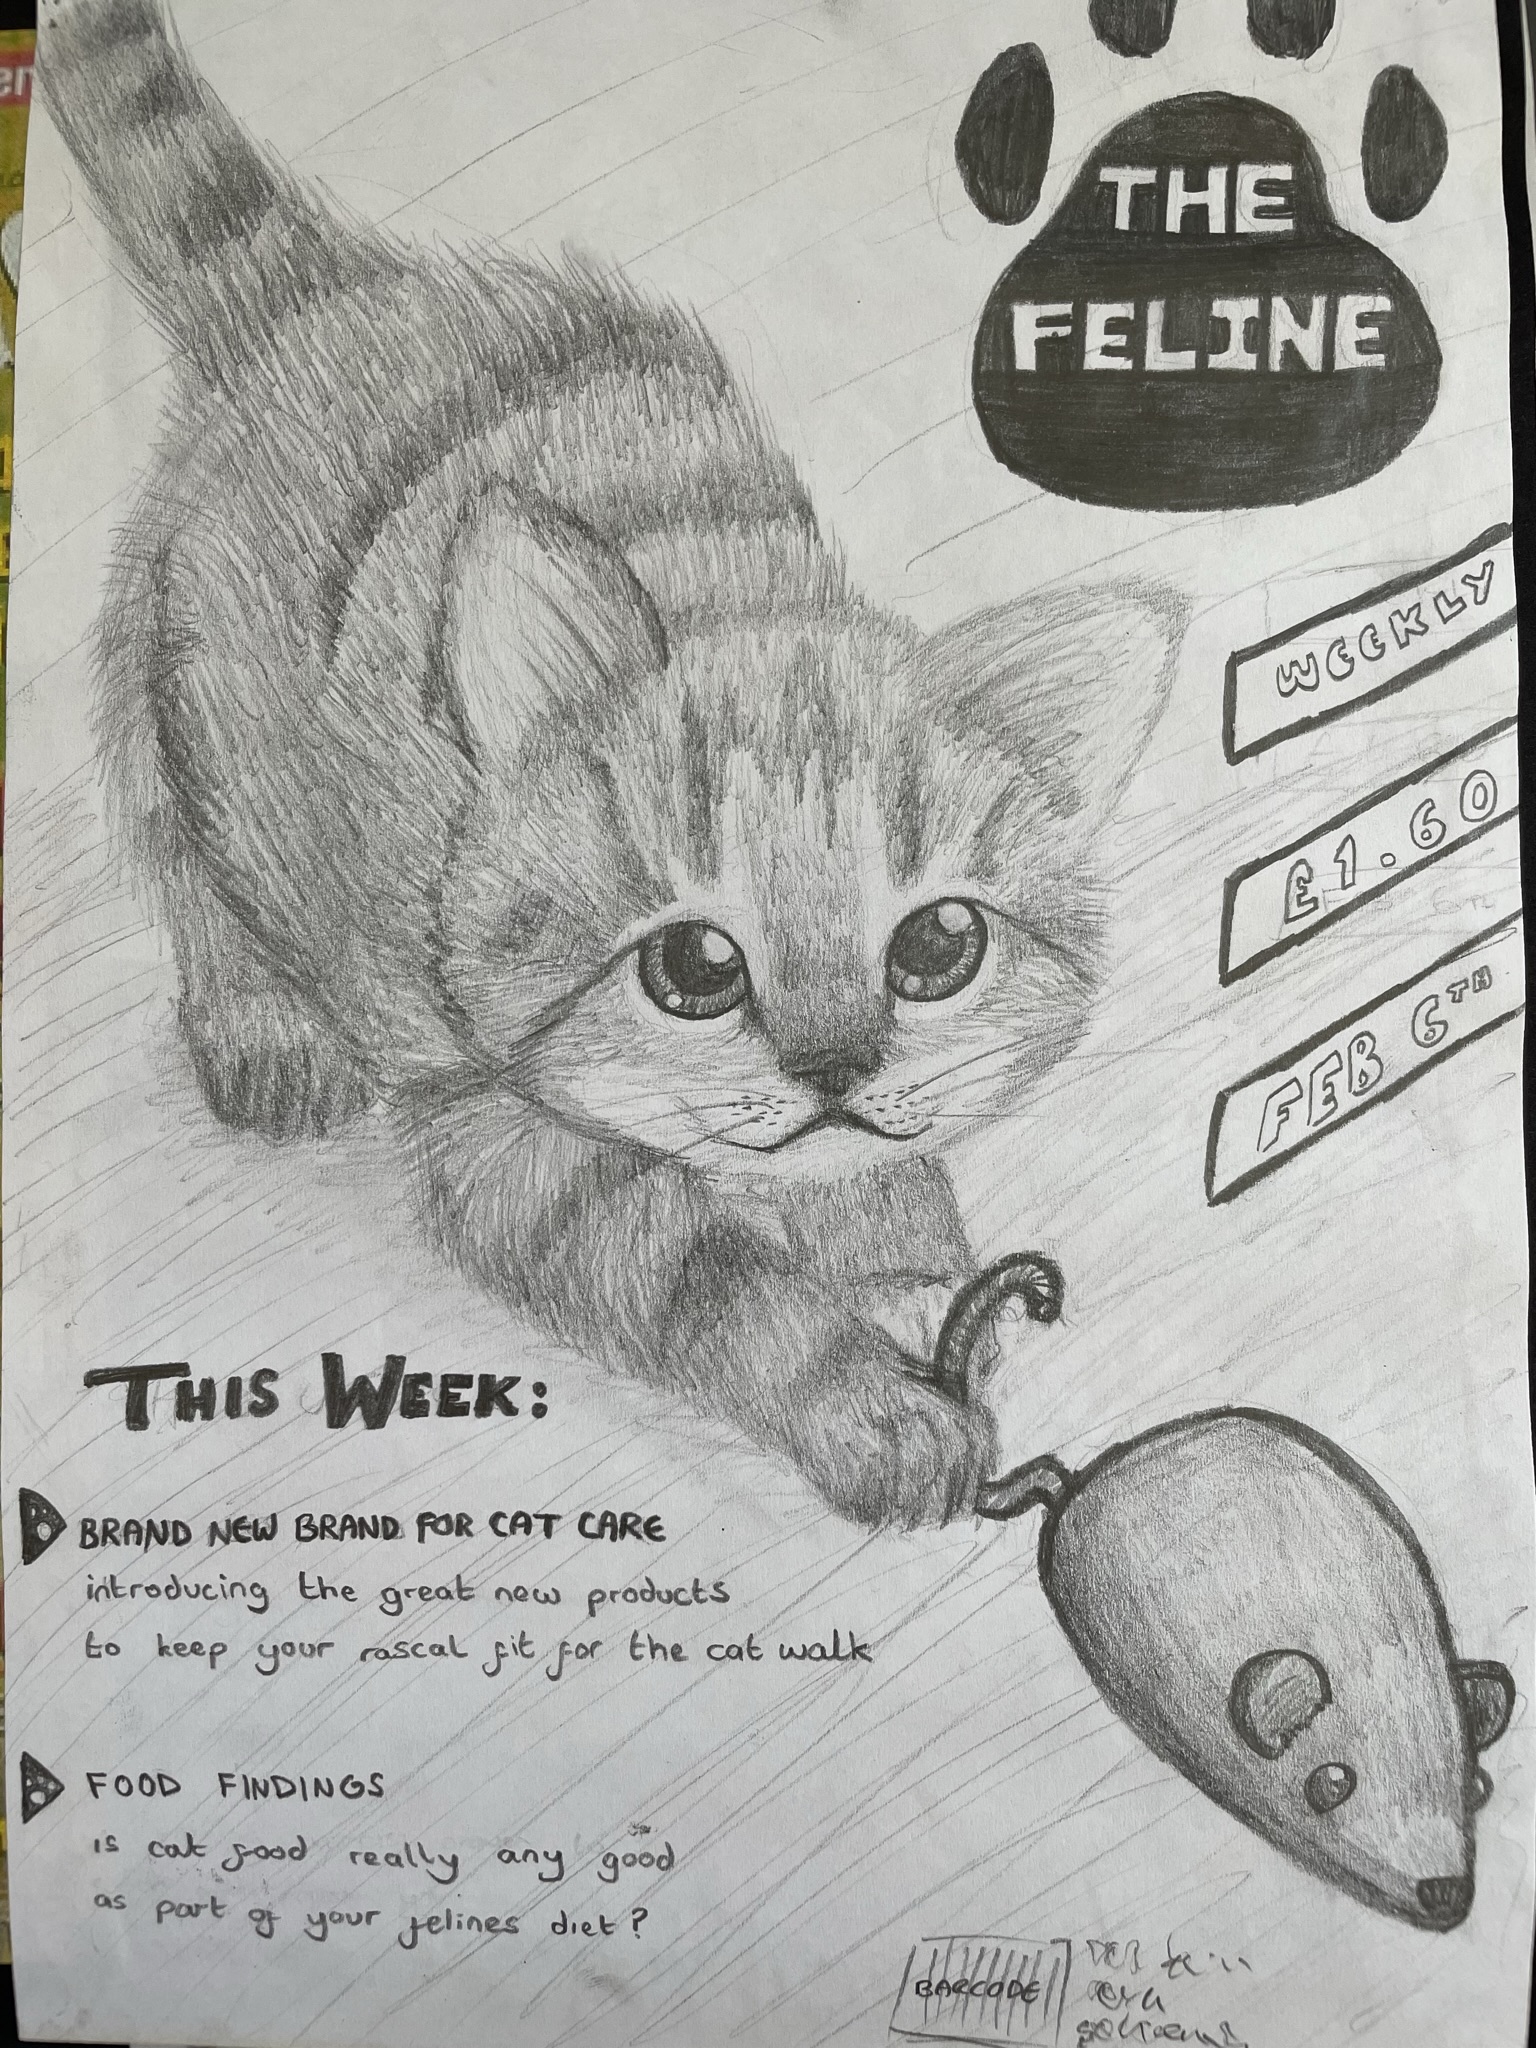 THE
FELINE
WEEKLY
£1.60
FEB 6TH
THIS WEEK:
BRAND NEW BRAND FOR CAT CARE
introducing the great new products
to keep your rascal fit for the cat walk
FOOD FINDINGS
is cat food really any good
as part of your felines diet?
BARCODE